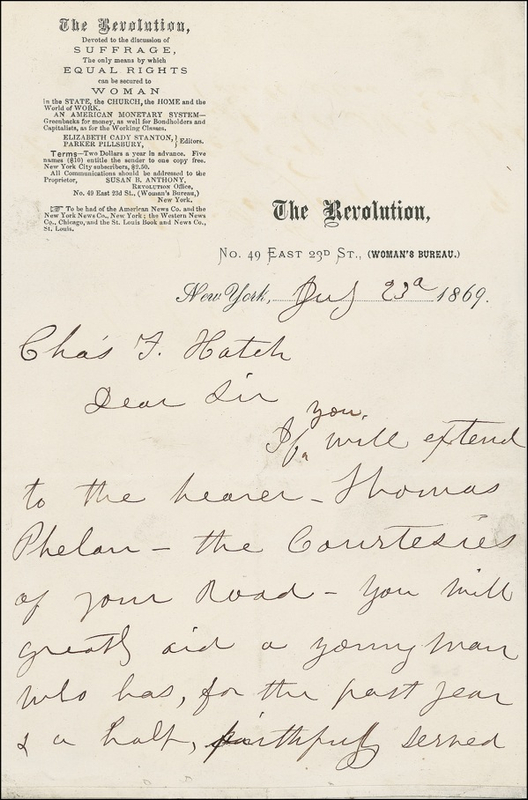 The Revolution,
Devoted to the discussion of
SUFFRAGE,
The only means by which
EQUAL RIGHTS
can be secured to
WOMAN
in the STATE, the CHURCH, the HOME and the
World of WORK.
AN AMERICAN MONETARY SYSTEM—
Greenbacks for money, as well for Bondholders and
Capitalists, as for the Working Classes.
ELIZABETH CADY STANTON, } Editors.
PARKER PILLSBURY,
Terms—Two Dollars a year in advance. Five
names ($10) entitle the sender to one copy free.
New York City subscribers, $2.50.
All Communications should be addressed to the
Proprietor, SUSAN B. ANTHONY,
REVOLUTION Office,
No. 49 East 23d St., (Woman's Bureau,)
New York.
☞ To be had of the American News Co. and the
New York News Co., New York; the Western News
Co., Chicago, and the St. Louis Book and News Co.,
St. Louis.
The Revolution,
No. 49 EAST 23D ST., (WOMAN'S BUREAU.)
New York, 23d 1869.
Cha's F. Hatch
Dear Sir
you
If will extend
to the bearer – Thomas
Phelan – the Courtesies
of your Road – you will
greatly aid a young man
who has, for the past year
& a half, faithfully served